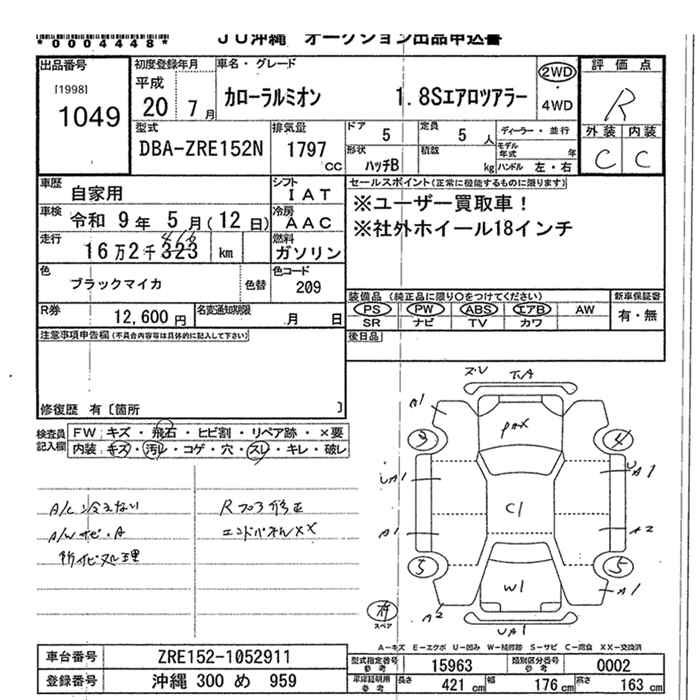 *0004448*
JU沖縄 オークション出品申込書
出品番号
[1998]
1049
初度登録年月
平成
20 7月
車名・グレード
カローラルミオン 1.8Sエアロツアラー
2WD
4WD
評価点
R
外装 内装
C C
型式
DBA-ZRE152N
排気量
1797 CC
ドア 5
定員 5人
形状 ハッチB
積数 kg
ディーラー・並行
モデル年式 年
ハンドル 左・右
車歴 自家用
シフト IAT
車検 令和 9年 5月(12日)
冷房 AAC
走行 16万2千323 km
燃料 ガソリン
色 ブラックマイカ 色替
色コード 209
R券 12,600円
名変通知期限 月 日
セールスポイント(正常に機能するものに限ります)
※ユーザー買取車!
※社外ホイール18インチ
装備品 (純正品に限り○をつけてください)
新車保証書
PS PW ABS エアB AW
SR ナビ TV カワ
有・無
後日品
注意事項申告欄(不具合内容等は具体的に記入して下さい)
修復歴 有〔箇所 〕
検査員記入欄
FW キズ・飛石・ヒビ割・リペア跡・×要
内装 キズ・汚レ・コゲ・穴・スレ・キレ・破レ
A/C冷えない
A/Wサビ・A
Rフロア修正
エンドパネルXX
A1
UA1
A1
A2
pax
C1
W1
4
UA1
A2
5
A1
UA1
スペア
A-キズ E-エクボ U-凹み W-補修跡 S-サビ C-腐食 XX-交換済
車台番号 ZRE152-1052911
登録番号 沖縄 300 め 959
型式指定番号 参考 15963
類別区分番号 参考 0002
車庫証明用 参考 長さ 421 cm 幅 176 cm 高さ 163 cm